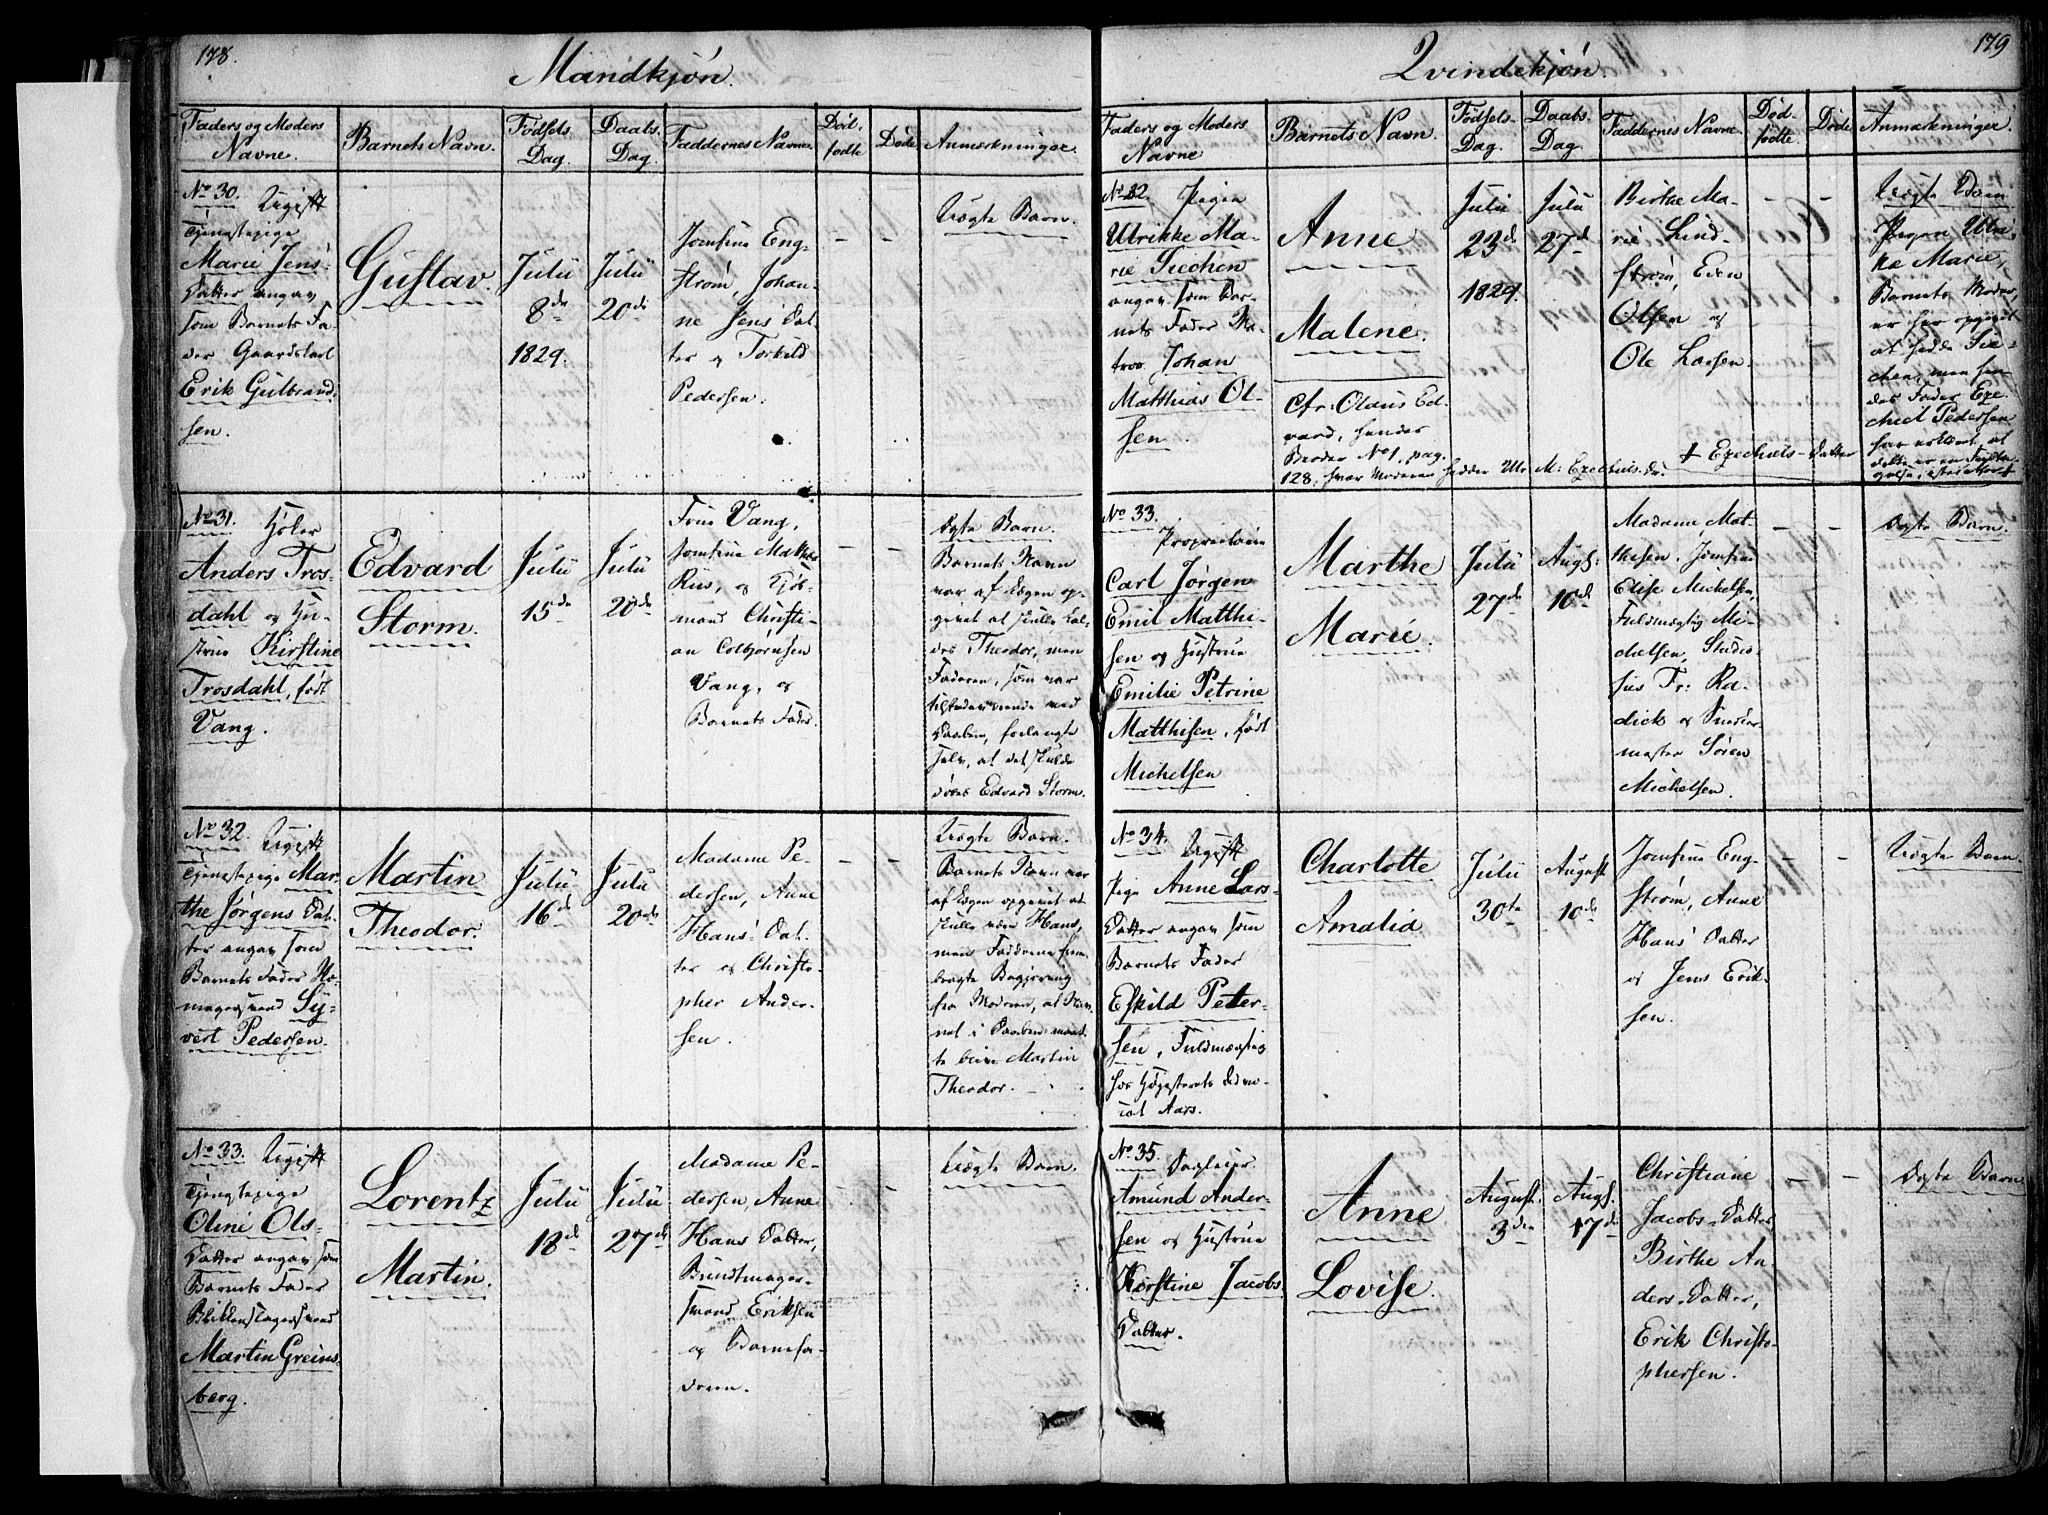 178.
Mandkjøn.
Faders og Moders
Navne.
Barnets Navn.
Fødsels
Dag.
Daabs
Dag.
Faddernes Navne.
Død-
fødte
Døde
Anmærkninger.
No 30. Ugift
Tjenestepige
Marie Jens-
Datter angav
som Barnets Fa-
der Gaardskarl
Erik Gulbrand-
sen.
Gustav.
Julii
8de
1829.
Julii
20de
Jomfrue Eng-
strøm, Johan-
ne Jens' Dat-
ter og Torkild
Pedersen.
–
–
Uægte Barn.
No 31. Høker
Anders Tros-
dahl og Hu-
strue Kirstine
Trosdahl, født
Vang.
Edvard
Storm.
Julii
15de
Julii
20de
Frue Vang,
Jomfrue Mathea
Rus, og Kjøb-
mand Christi-
an Colbjørnsen
Vang, og
Barnets Fader.
–
–
Ægte Barn.
Barnets Navn
var af Lægen op-
givet at skulle kal-
des Theodor, men
Faderen, som var
tilstedeværende ved
Daaben, forlangte
selv, at det skulde
døbes Edvard Storm.
No 32. Ugift
Tjenestepige Mar-
the Jørgens Dat-
ter angav som
Barnets Fader
Sy-
vert Pedersen.
Martin
Theodor.
Julii
16de
Julii
20de
Madame Pe-
dersen, Anne
Hans' Dat-
ter og Christo-
pher Ander-
sen.
–
–
Uægte Barn.
Barnets Navn var
af Lægen opgivet at
skulle være Hans,
men Fadderne frem-
bragte Begjering
fra Moderen, at Nav-
net i Daaben maat-
te blive Martin
Theodor.
No 33. Ugift
Tjenestepige
Oline Ols-
Datter angav som
Barnets Fader
Blikkenslagersvend
Martin Greins-
berg.
Lorentz
Martin.
Julii
18de
Julii
27de
Madame Pe-
dersen, Anne
Hans Datter,
Bundtmager-
svend Eriksen
og Barnefa-
deren.
–
–
Uægte Barn.
179
Qvindekjøn.
Faders og Moders
Navne
Barnets Navn.
Fødsels-
Dag.
Daabs-
Dag.
Faddernes Navne.
Død-
fødte.
Døde
Anmærkninger.
No 32. Pigen
Ulrikke Ma-
rie Siechen
angav som Bar-
nets Fader Ma-
tros Johan
Matthias Ol-
sen.
Anne
Malene.
Cfr: Olaus Ed-
vard, hendes
Broder No 1, pag.
128, hvor Moderen hedder Ulr. M. Ezechiels. Dr.
Julii
23de
1829.
Julii
27de
Birthe Ma-
rie Lind-
strøm, Even
Olsen og
Ole Larsen.
–
–
Uægte Barn
Pigen Ulri-
ke Marie,
Barnets Moder,
er her opgivet
at hedde Sie-
chen, men hen-
des Fader Eze-
chiel Pedersen
har erklæret at
+ Ezechiels-Datter
No 33.
Proprietair
Carl Jørgen
Emil Matthi-
sen og Hustrue
Emilie Petrine
Matthisen, født
Michelsen
Marthe
Marie.
Julii
27de
Augst:
10de
Madame Mat-
thisen, Jomfrue
Elise Michelsen,
Fuldmægtig Mi-
chelsen, Studio-
sus Fr: Ra-
dick og
Søren
Michelsen.
–
–
Ægte Barn.
No 34. Ugift
Pige Anne Lars-
Datter angav som
Barnets Fader
Eskild Peter-
sen, Fuldmægtig
hos Høyesterets Advo-
cat Aars.
Charlotte
Amalia
Julii
30te
August
10de
Jomfrue Eng-
strøm, Anne
Hans' Datter
og Jens Erik-
sen.
–
–
Uægte Barn.
No 35. Dagleier
Amund Ander-
sen og Hustrue
Kirstine Jacobs
Datter.
Anne
Lovise.
August.
3die
Augst.
17de
Christiane
Jacobs-Datter
Birthe An-
ders-Datter,
Erik Christo-
phersen.
–
–
Ægte Barn.